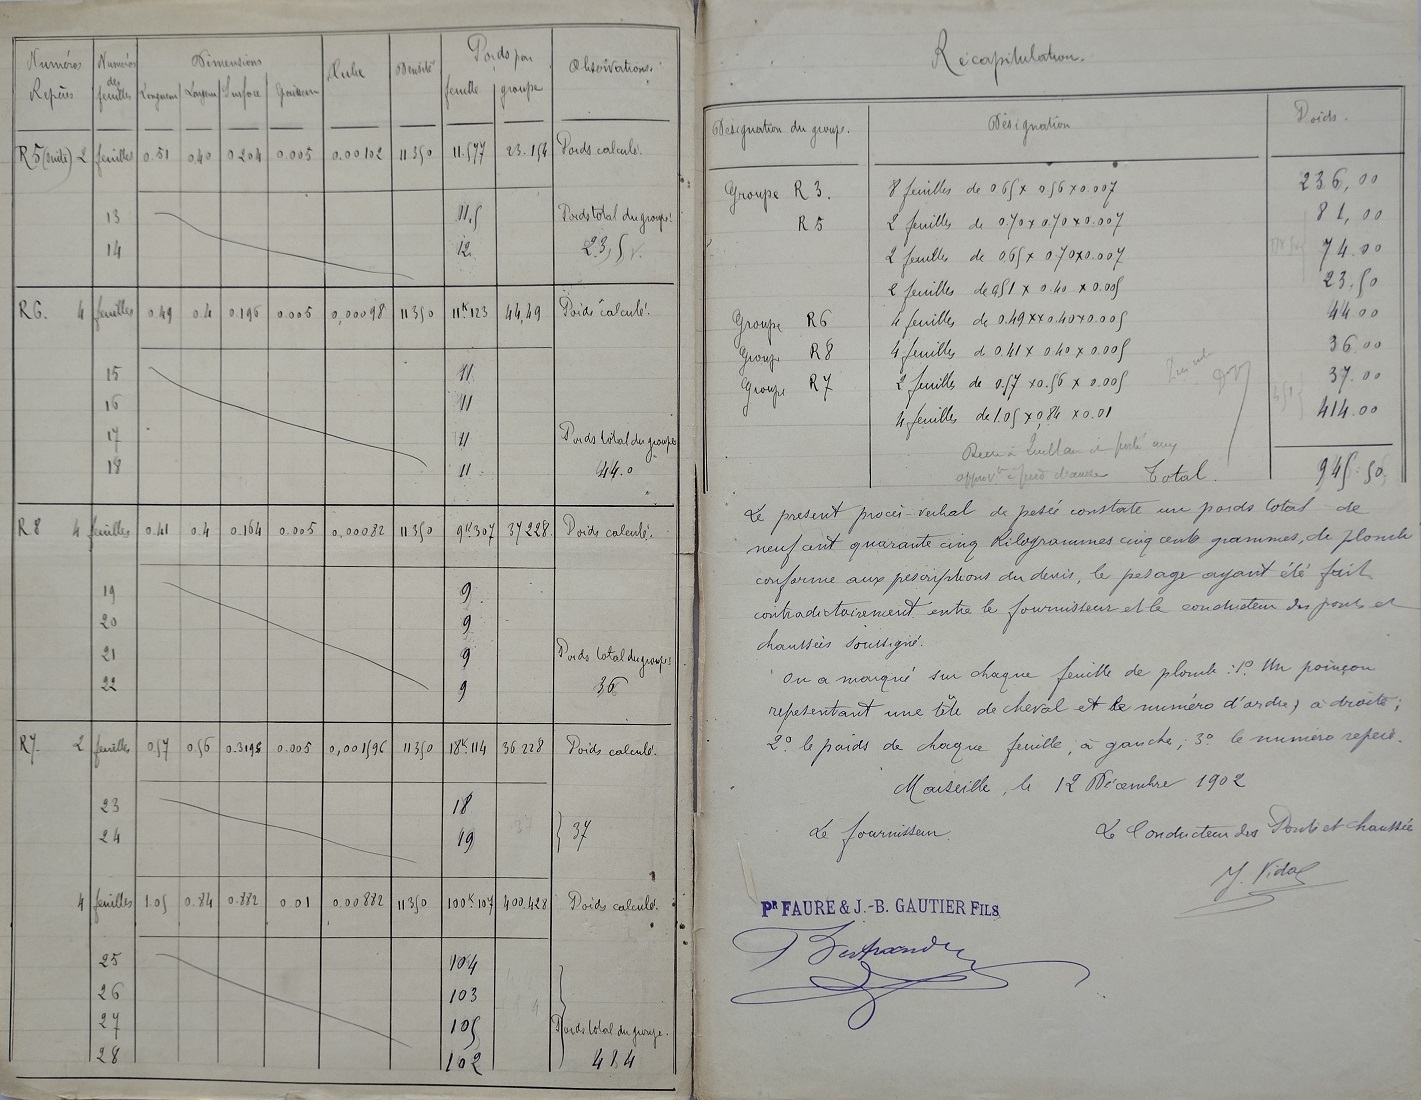 Numéros Repères | Numéros des feuilles | Dimensions | Cube | Densité | Poids par | Observations.
Longueur | Largeur | Surface | Epaisseur | feuille | groupe
R5 (suite) 2 feuilles | 0.51 | 0.40 | 0.204 | 0.005 | 0.00102 | 11350 | 11.577 | 23.154 | Poids calculé.
13 | 11.5 | Poids total du groupe:
14 | 12 | 23,5
R6. 4 feuilles | 0.49 | 0.4 | 0.196 | 0.005 | 0,00098 | 11350 | 11K123 | 44,49 | Poids calculé.
15 | 11
16 | 11
17 | 11 | Poids total du groupe
18 | 11 | 44.0
R8 4 feuilles | 0.41 | 0.4 | 0.164 | 0.005 | 0,00082 | 11350 | 9K307 | 37228. | Poids calculé.
19 | 9
20 | 9
21 | 9 | Poids total du groupe:
22 | 9 | 36
R7. 2 feuilles | 0.57 | 0.56 | 0.3196 | 0.005 | 0,001596 | 11350 | 18K114 | 36228 | Poids calculé.
23 | 18
24 | 19 | 37
4 feuilles | 1.05 | 0.84 | 0.882 | 0.01 | 0.00882 | 11350 | 100K107 | 400.428 | Poids calculé.
25 | 104
26 | 103
27 | 105 | Poids total du groupe.
28 | 102 | 414
Récapitulation.
Désignation du groupe. | Désignation | Poids.
Groupe R3. | 8 feuilles de 0.65 x 0.56 x 0.007 | 236,00
R5 | 2 feuilles de 0.70 x 0.70 x 0.007 | 81,00
2 feuilles de 0.65 x 0.70 x 0.007 | 74.00
2 feuilles de 0.51 x 0.40 x 0.005 | 23.50
Groupe R6 | 4 feuilles de 0.49 xx 0.40 x 0.005 | 44.00
Groupe R8 | 4 feuilles de 0.41 x 0.40 x 0.005 | 36.00
Groupe R7 | 2 feuilles de 0.57 x 0.56 x 0.005 | 37.00
4 feuilles de 1.05 x 0,84 x 0.01 | 414.00
Total. | 945.50
Le présent procès-verbal de pesée constate un poids total de
neuf cent quarante cinq Kilogrammes cinq cents grammes, de plomb
conforme aux prescriptions du devis, le pesage ayant été fait
contradictoirement entre le fournisseur et le conducteur des ponts et
chaussées soussigné.
On a marqué sur chaque feuille de plomb: 1° Un poinçon
représentant une tête de cheval et le numéro d'ordre, à droite;
2° le poids de chaque feuille, à gauche; 3° le numéro repère.
Marseille, le 12 Décembre 1902
Le fournisseur. | Le Conducteur des Ponts et Chaussées
J. Vidal
Pr FAURE & J.-B. GAUTIER FILS